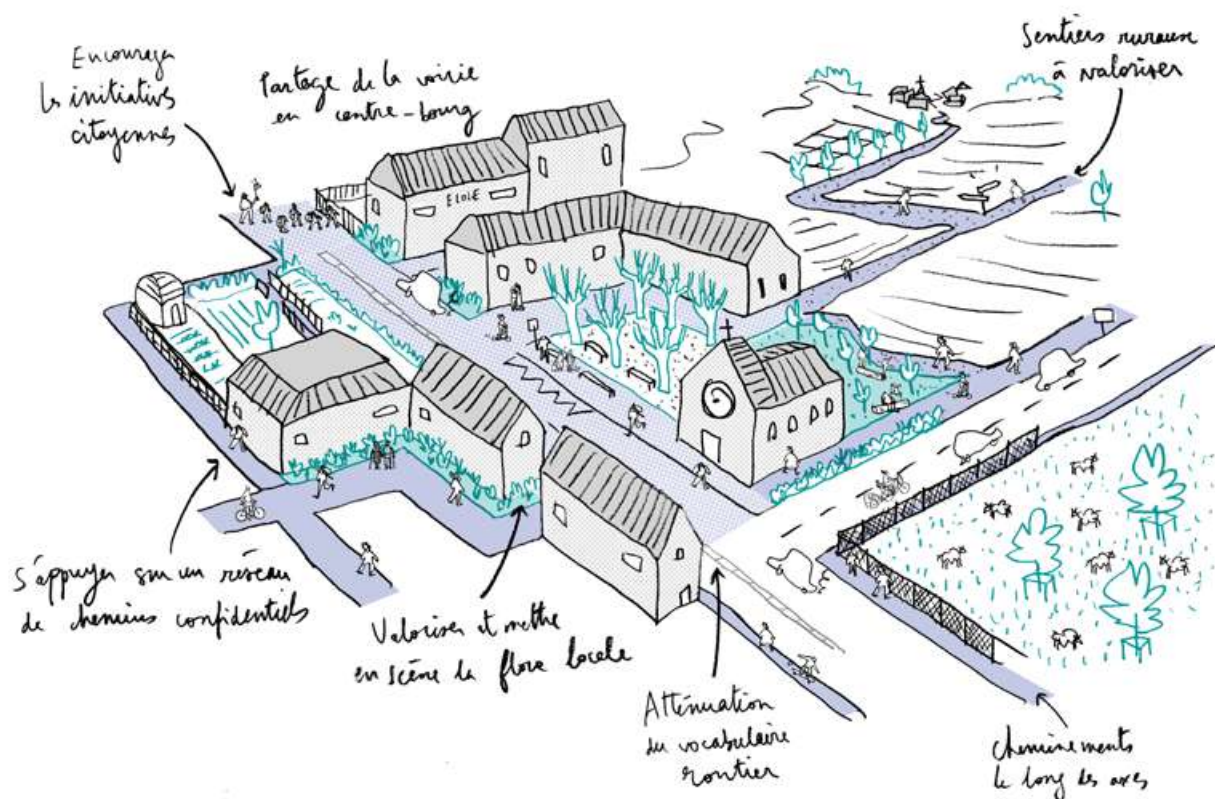 Encourager
les initiatives
citoyennes
Partage de la voirie
en centre-bourg
Sentiers ruraux
à valoriser
ECOLE
S'appuyer sur un réseau
de chemins confidentiels
Valoriser et mettre
en scène la flore locale
Atténuation
du vocabulaire
routier
Cheminements
le long des axes